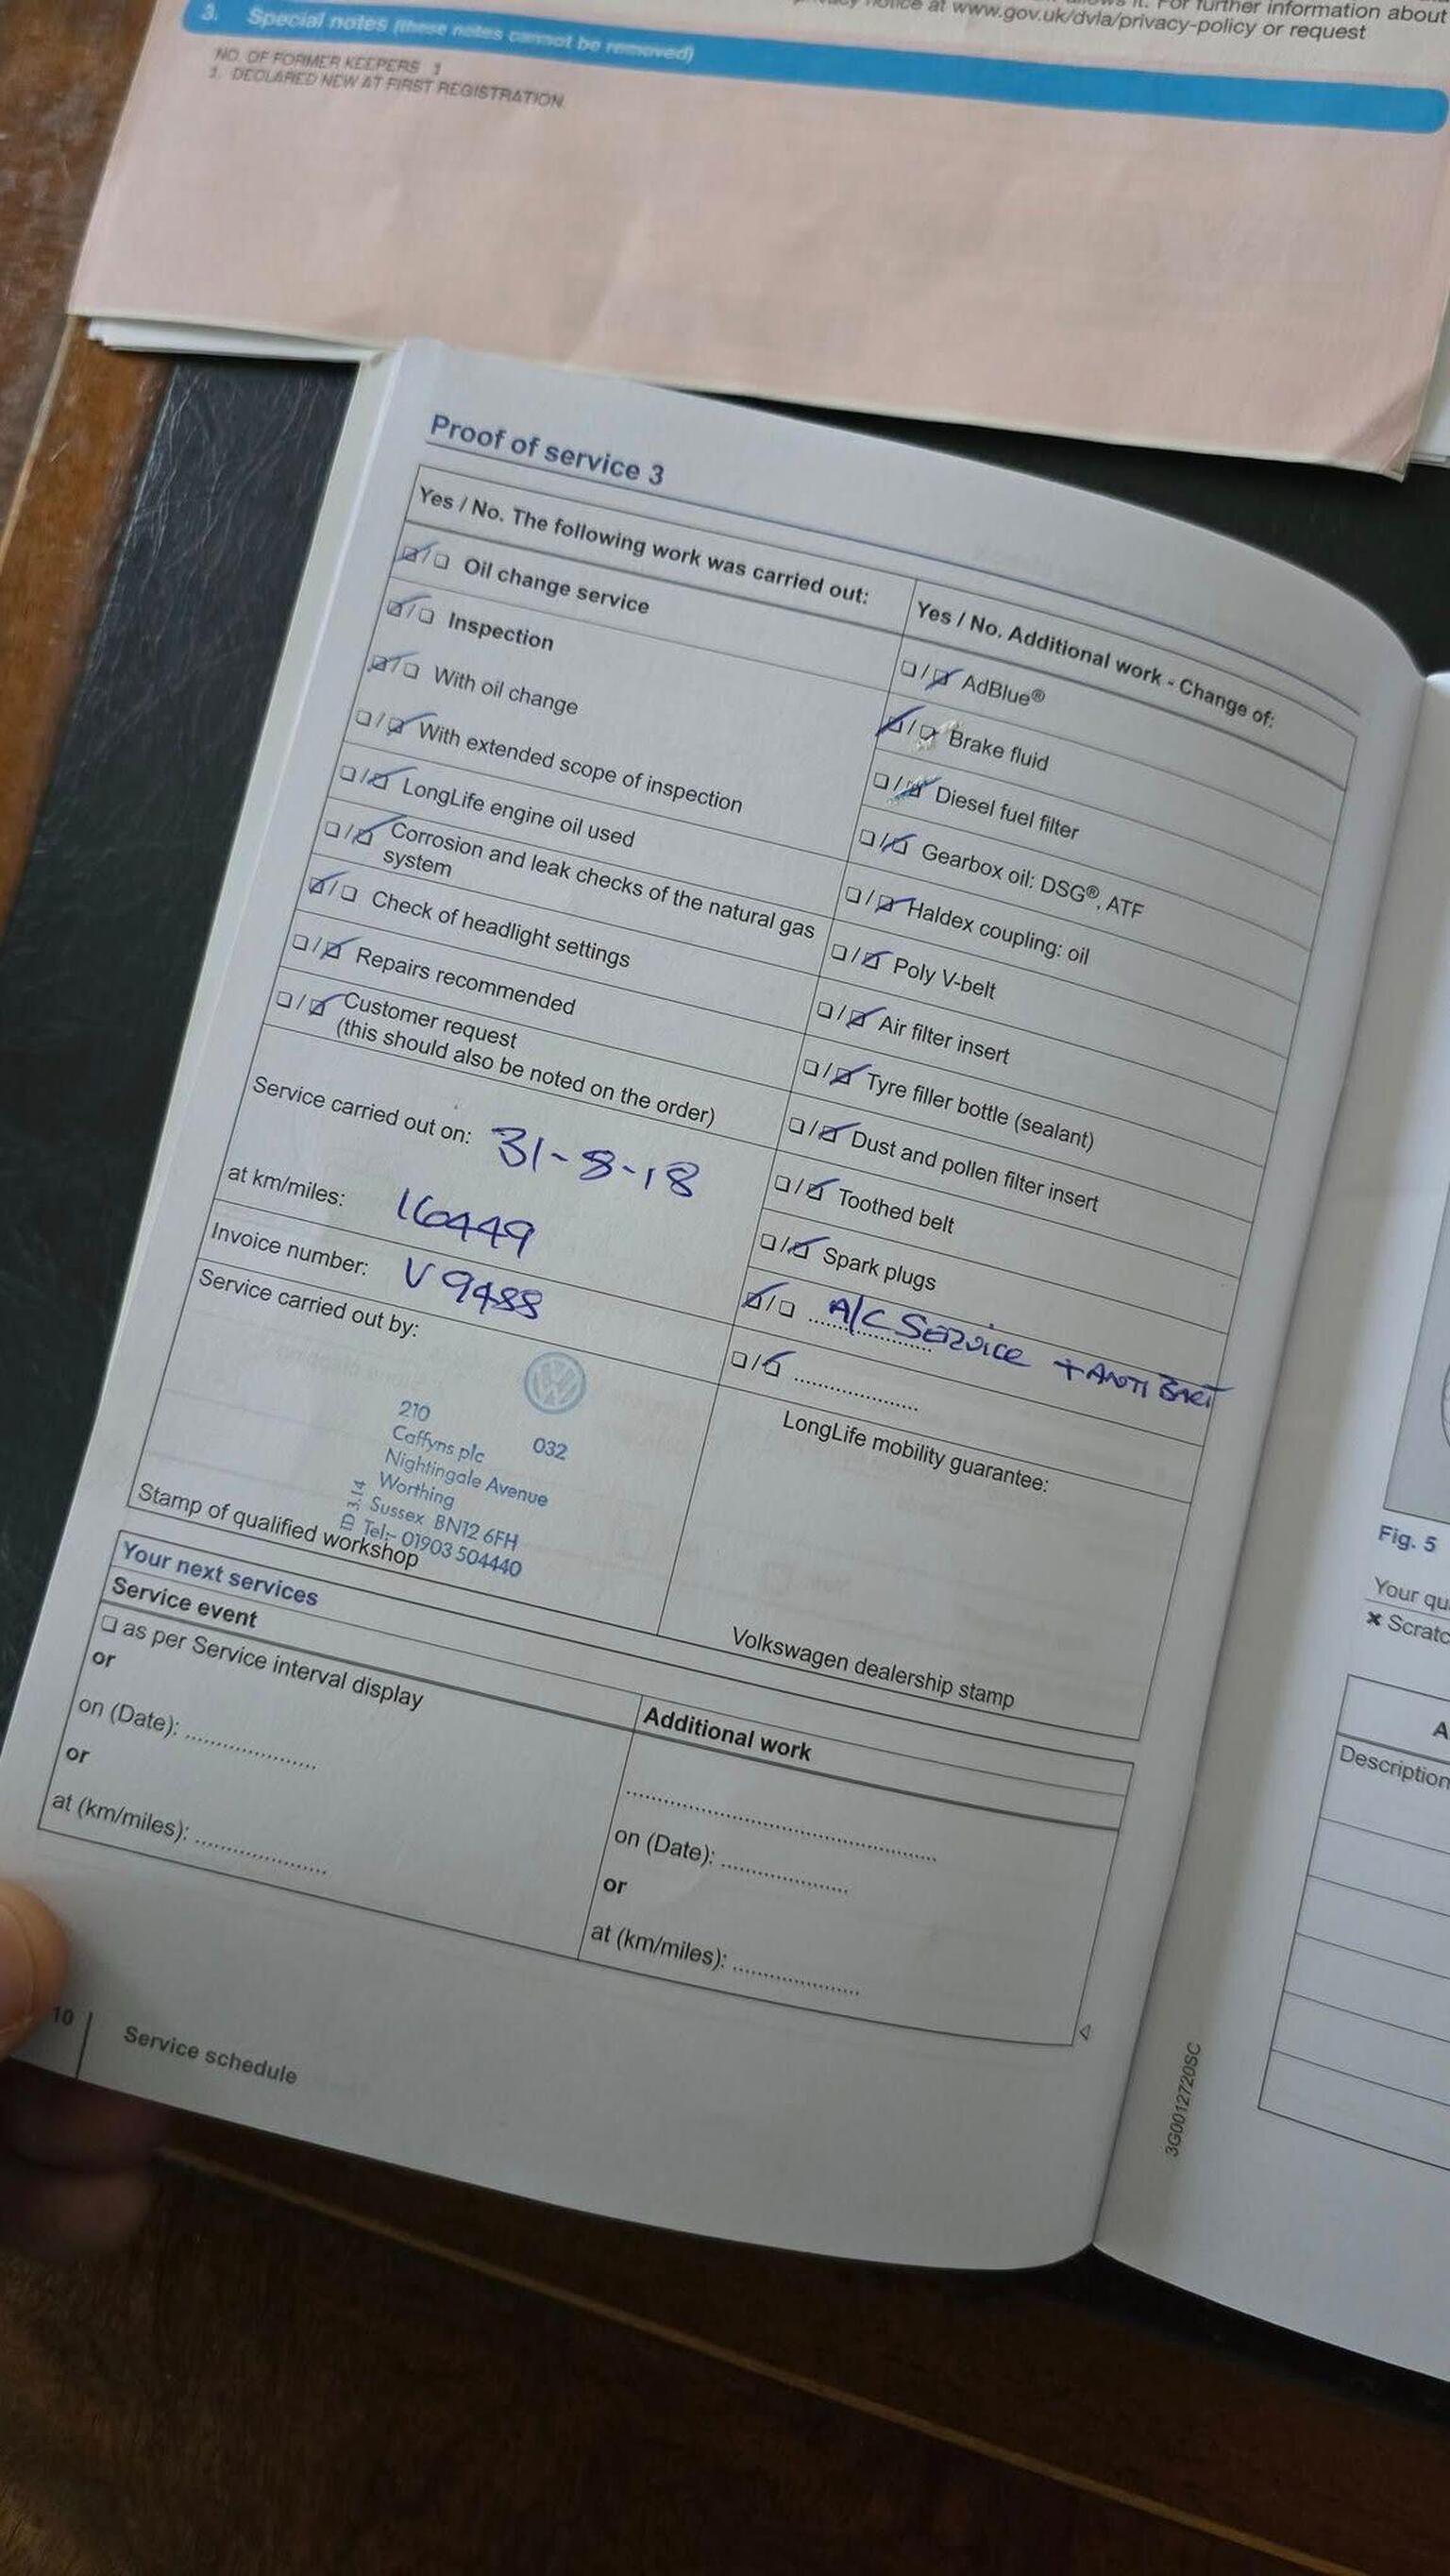 allows it. For further information about
privacy notice at www.gov.uk/dvla/privacy-policy or request
3. Special notes (these notes cannot be removed)
NO. OF FORMER KEEPERS 3
1. DECLARED NEW AT FIRST REGISTRATION
Proof of service 3
Yes / No. The following work was carried out:
☑/☐ Oil change service
☑/☐ Inspection
☑/☐ With oil change
☐/☑ With extended scope of inspection
☐/☑ LongLife engine oil used
☐/☑ Corrosion and leak checks of the natural gas
system
☑/☐ Check of headlight settings
☐/☑ Repairs recommended
☐/☑ Customer request
(this should also be noted on the order)
Service carried out on: 31-8-18
at km/miles: 16449
Invoice number: V9488
Service carried out by:
210
Caffyns plc 032
Nightingale Avenue
Worthing
Sussex BN12 6FH
Tel:- 01903 504440
D 3.14
Stamp of qualified workshop
Yes / No. Additional work - Change of:
☐/☑ AdBlue®
☑/☐ Brake fluid
☐/☑ Diesel fuel filter
☐/☑ Gearbox oil: DSG®, ATF
☐/☑ Haldex coupling: oil
☐/☑ Poly V-belt
☐/☑ Air filter insert
☐/☑ Tyre filler bottle (sealant)
☐/☑ Dust and pollen filter insert
☐/☑ Toothed belt
☐/☑ Spark plugs
☑/☐ A/C SERVICE + ANTI BACT
☐/☑ ....................
LongLife mobility guarantee:
Volkswagen dealership stamp
Your next services
Service event
☐ as per Service interval display
or
on (Date): ....................
or
at (km/miles): ....................
Additional work
..................................................
on (Date): ....................
or
at (km/miles): ....................
10 Service schedule
3G0012720SC
Fig. 5
Your qu
× Scratc
A
Description